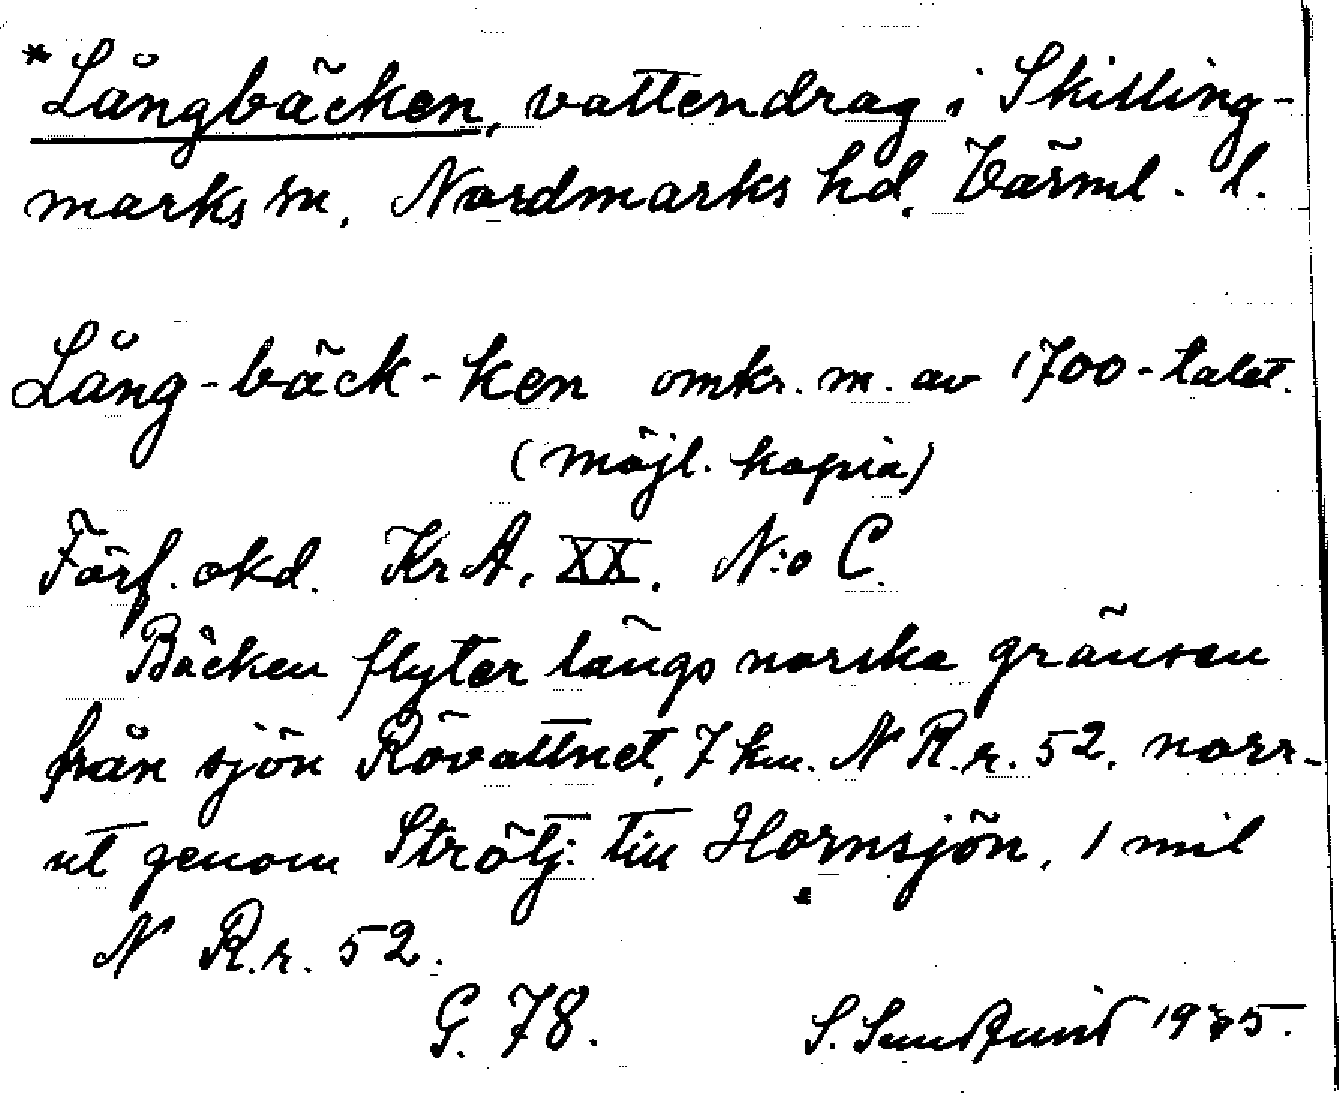 *Långbäcken, vattendrag i Skilling-
marks sn, Nordmarks hd, Värml. l.
Lång-bäck-ken omkr. m. av 1700-talet.
(möjl. kopia)
Förf. okd. Kr A. XX. N:o C.
Bäcken flyter längs norska gränsen
från sjön Rövattnet, 7 km. N R.r. 52, norr-
ut genom Strötj: till Hornsjön, 1 mil
N R.r. 52.
G. 78. S. 1935.